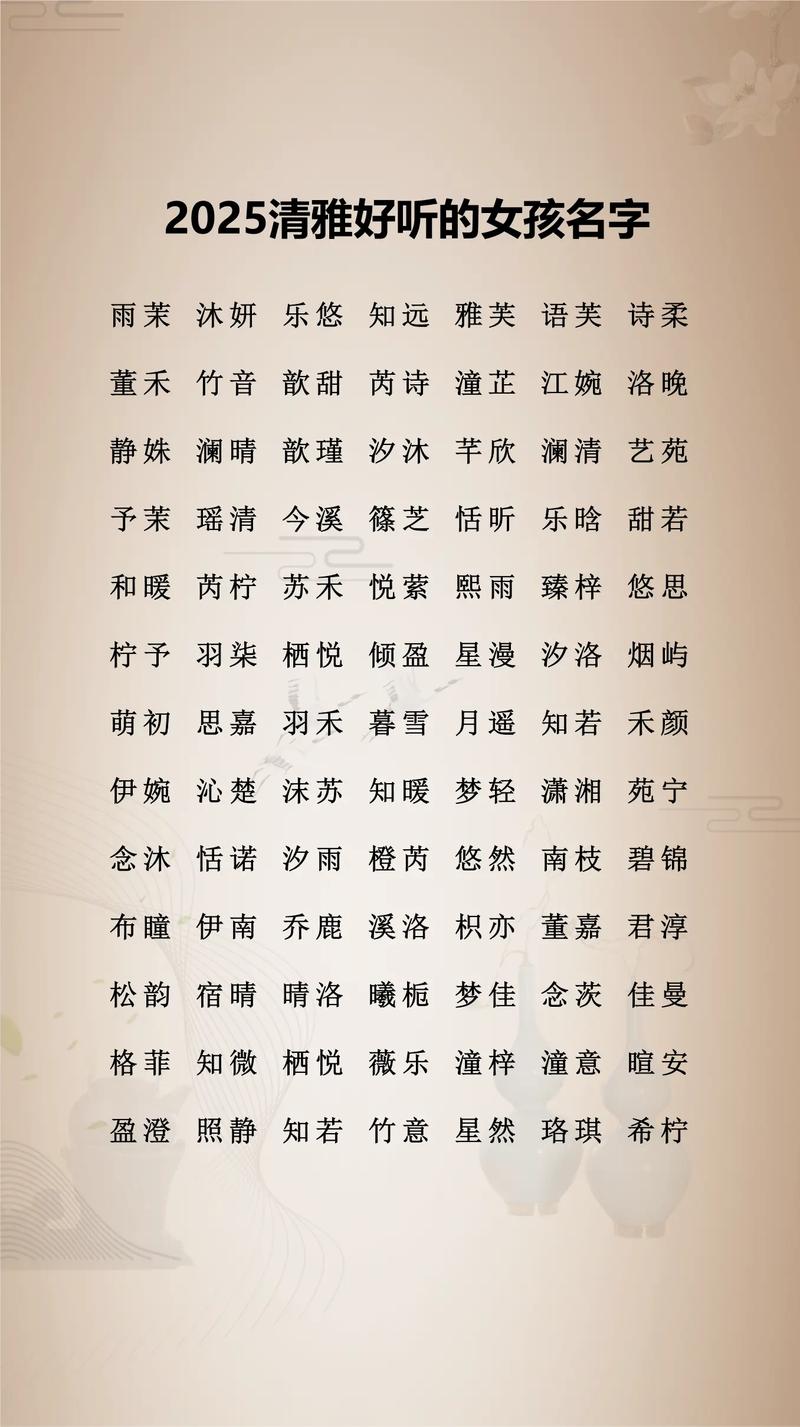 2025清雅好听的女孩名字
雨茉 沐妍 乐悠 知远 雅芙 语芙 诗柔
董禾 竹音 歆甜 芮诗 潼芷 江婉 洛晚
静姝 澜晴 歆瑾 汐沐 芊欣 澜清 艺苑
予茉 瑶清 今溪 篠芝 恬昕 乐晗 甜若
和暖 芮柠 苏禾 悦萦 熙雨 臻梓 悠思
柠予 羽柒 栖悦 倾盈 星漫 汐洛 烟屿
萌初 思嘉 羽禾 暮雪 月遥 知若 禾颜
伊婉 沁楚 沫苏 知暖 梦轻 潇湘 苑宁
念沐 恬诺 汐雨 橙芮 悠然 南枝 碧锦
布瞳 伊南 乔鹿 溪洛 枳亦 董嘉 君淳
松韵 宿晴 晴洛 曦栀 梦佳 念茨 佳曼
格菲 知微 栖悦 薇乐 潼梓 潼意 暄安
盈澄 照静 知若 竹意 星然 珞琪 希柠